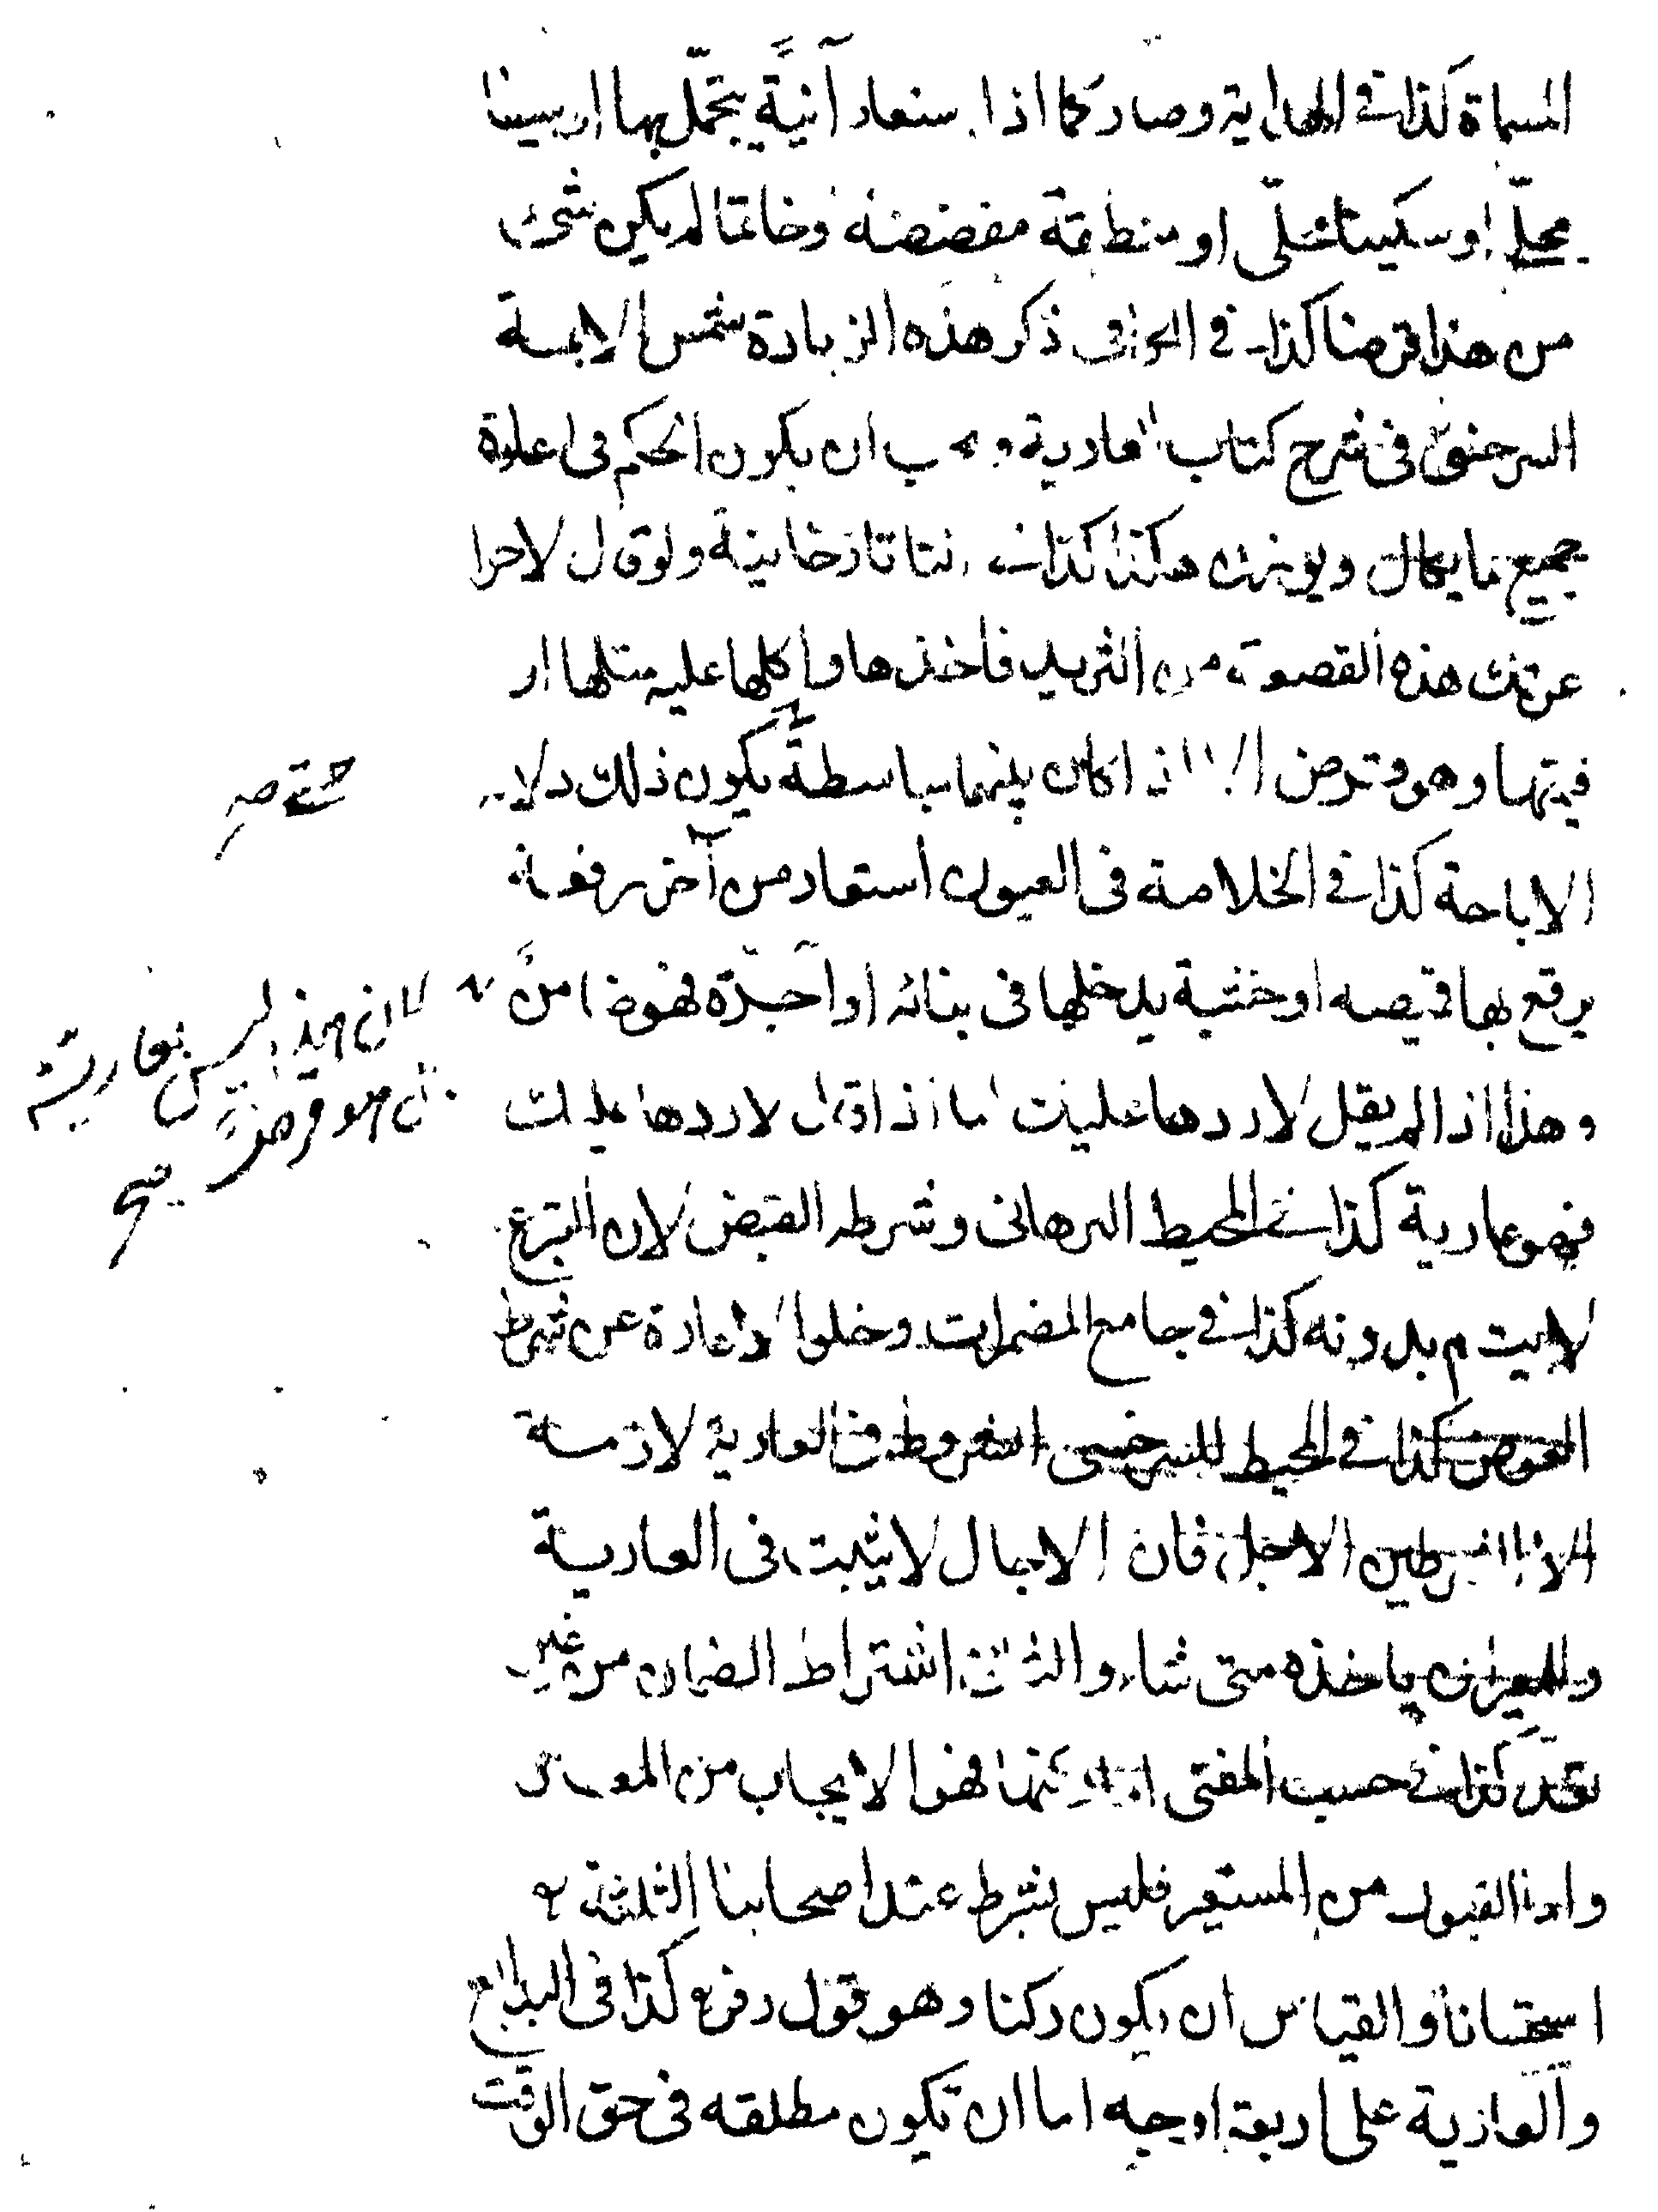 المسماة كذا في الهداية وصار كما اذا استعار آنيةً يتجمّل بها او سيفا
محلّى او سكينا محلّى او منطقة مفضضة وخاتما لم يكن شئ
من هذا قرضا كذا في الكافي ذكر هذه الزيادة شمس الايمة
السرخسي في شرح كتاب العارية و يجب ان يكون الحكم في اعارة
جميع ما يكال ويوزن هكذا كذا في التاتارخانية ولو قال لاخر
اعرتك هذه القصعة من الثريد فاخذها واكلها عليه مثلها او
قيمتها وهو قرض الا اذا كان بينهما مباسطة يكون ذلك دلالة
الاباحة كذا في الخلاصة في العيون استعار من آخر رقعة
يرقع بها قميصه او خشبة يدخلها في بنائه او آجرّة فهو ضامنٌ
لان هذا ليس بعارية
بل هو قرض صح
وهذا اذا لم يقل لاردها عليك اما اذا قال لاردها عليك
فهو عارية كذا في المحيط البرهاني وشرطه القبض لان التبرع
لا يتم بدونه كذا في جامع المضمرات وخلو الاعارة عن شرط
العوض كذا في المحيط للسرخسي الشروط في العارية لازمة
الا الشرطين الاجل فان الاجال لا يثبت في العارية
وللمعير ان ياخذه متى شاء والثاني اشتراط الضمان من غير
تعدّ كذا في حسب المفتي اما ركنها فهو الايجاب من المعير
واما القبول من المستعير فليس بشرط عند اصحابنا الثلثة
استحسانا والقياس ان يكون ركنا وهو قول زفر كذا في البدايع
والعارية على اربعة اوجه اما ان تكون مطلقه في حق الوقت